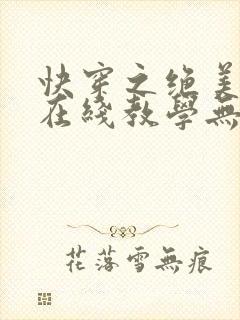 快穿之绝美
在线教學無
花落雪無痕